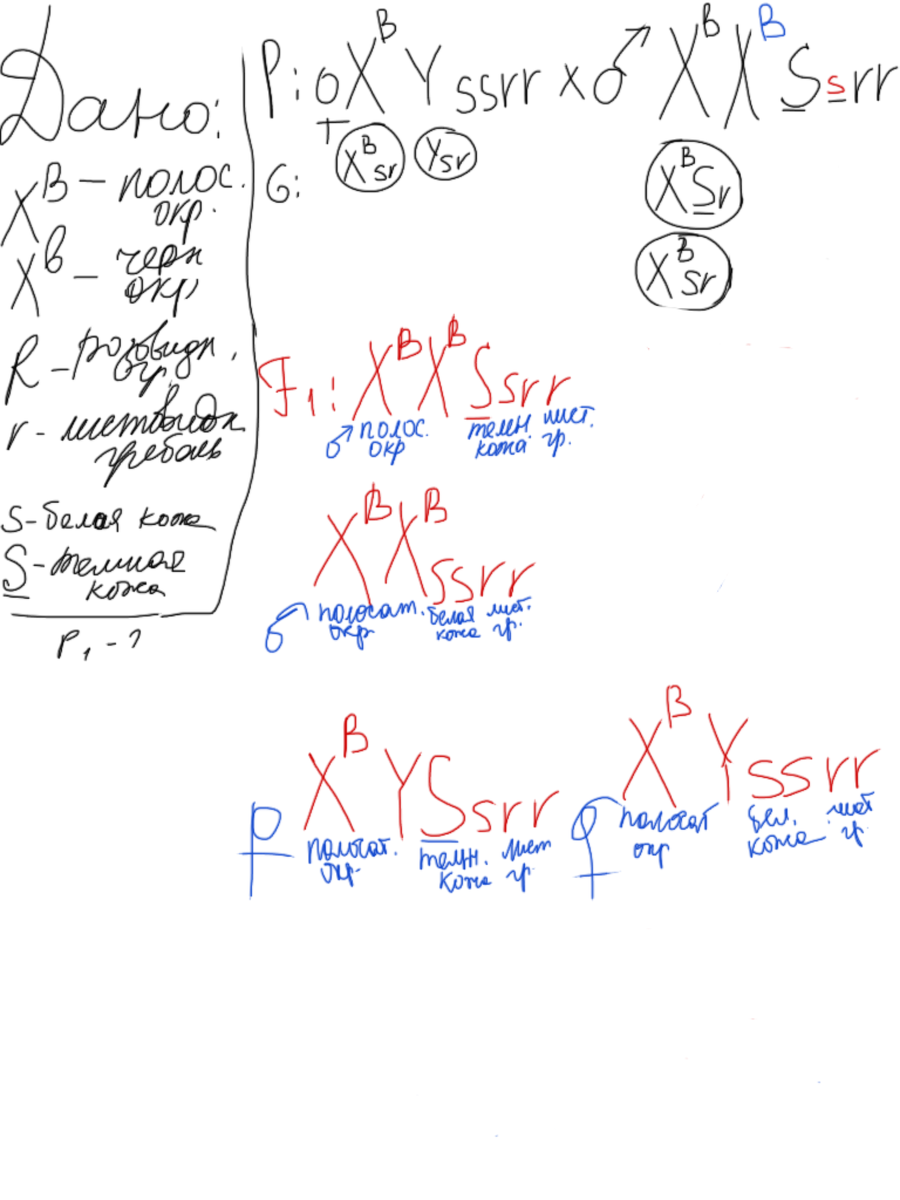 Дано:
X^B – полос.
окр.
X^b – черн
окр
R – розовидн.
r - листовидн
гребень
s - белая кожа
S - темная
кожа
P₁ - ?
P: ♀ X^B Y ssrr x ♂ X^B X^B S s rr
G: X^B sr Y sr X^B Sr
X^B sr
F₁: X^B X^B Ssrr
♂ полос. окр темн. кожа лист. гр.
X^B X^B ssrr
♂ полосат. окр белая кожа лист. гр.
X^B Y Ssrr
♀ полосат. окр. темн. кожа лист гр.
X^B Y ssrr
♀ полосат окр бел. кожа лист гр.